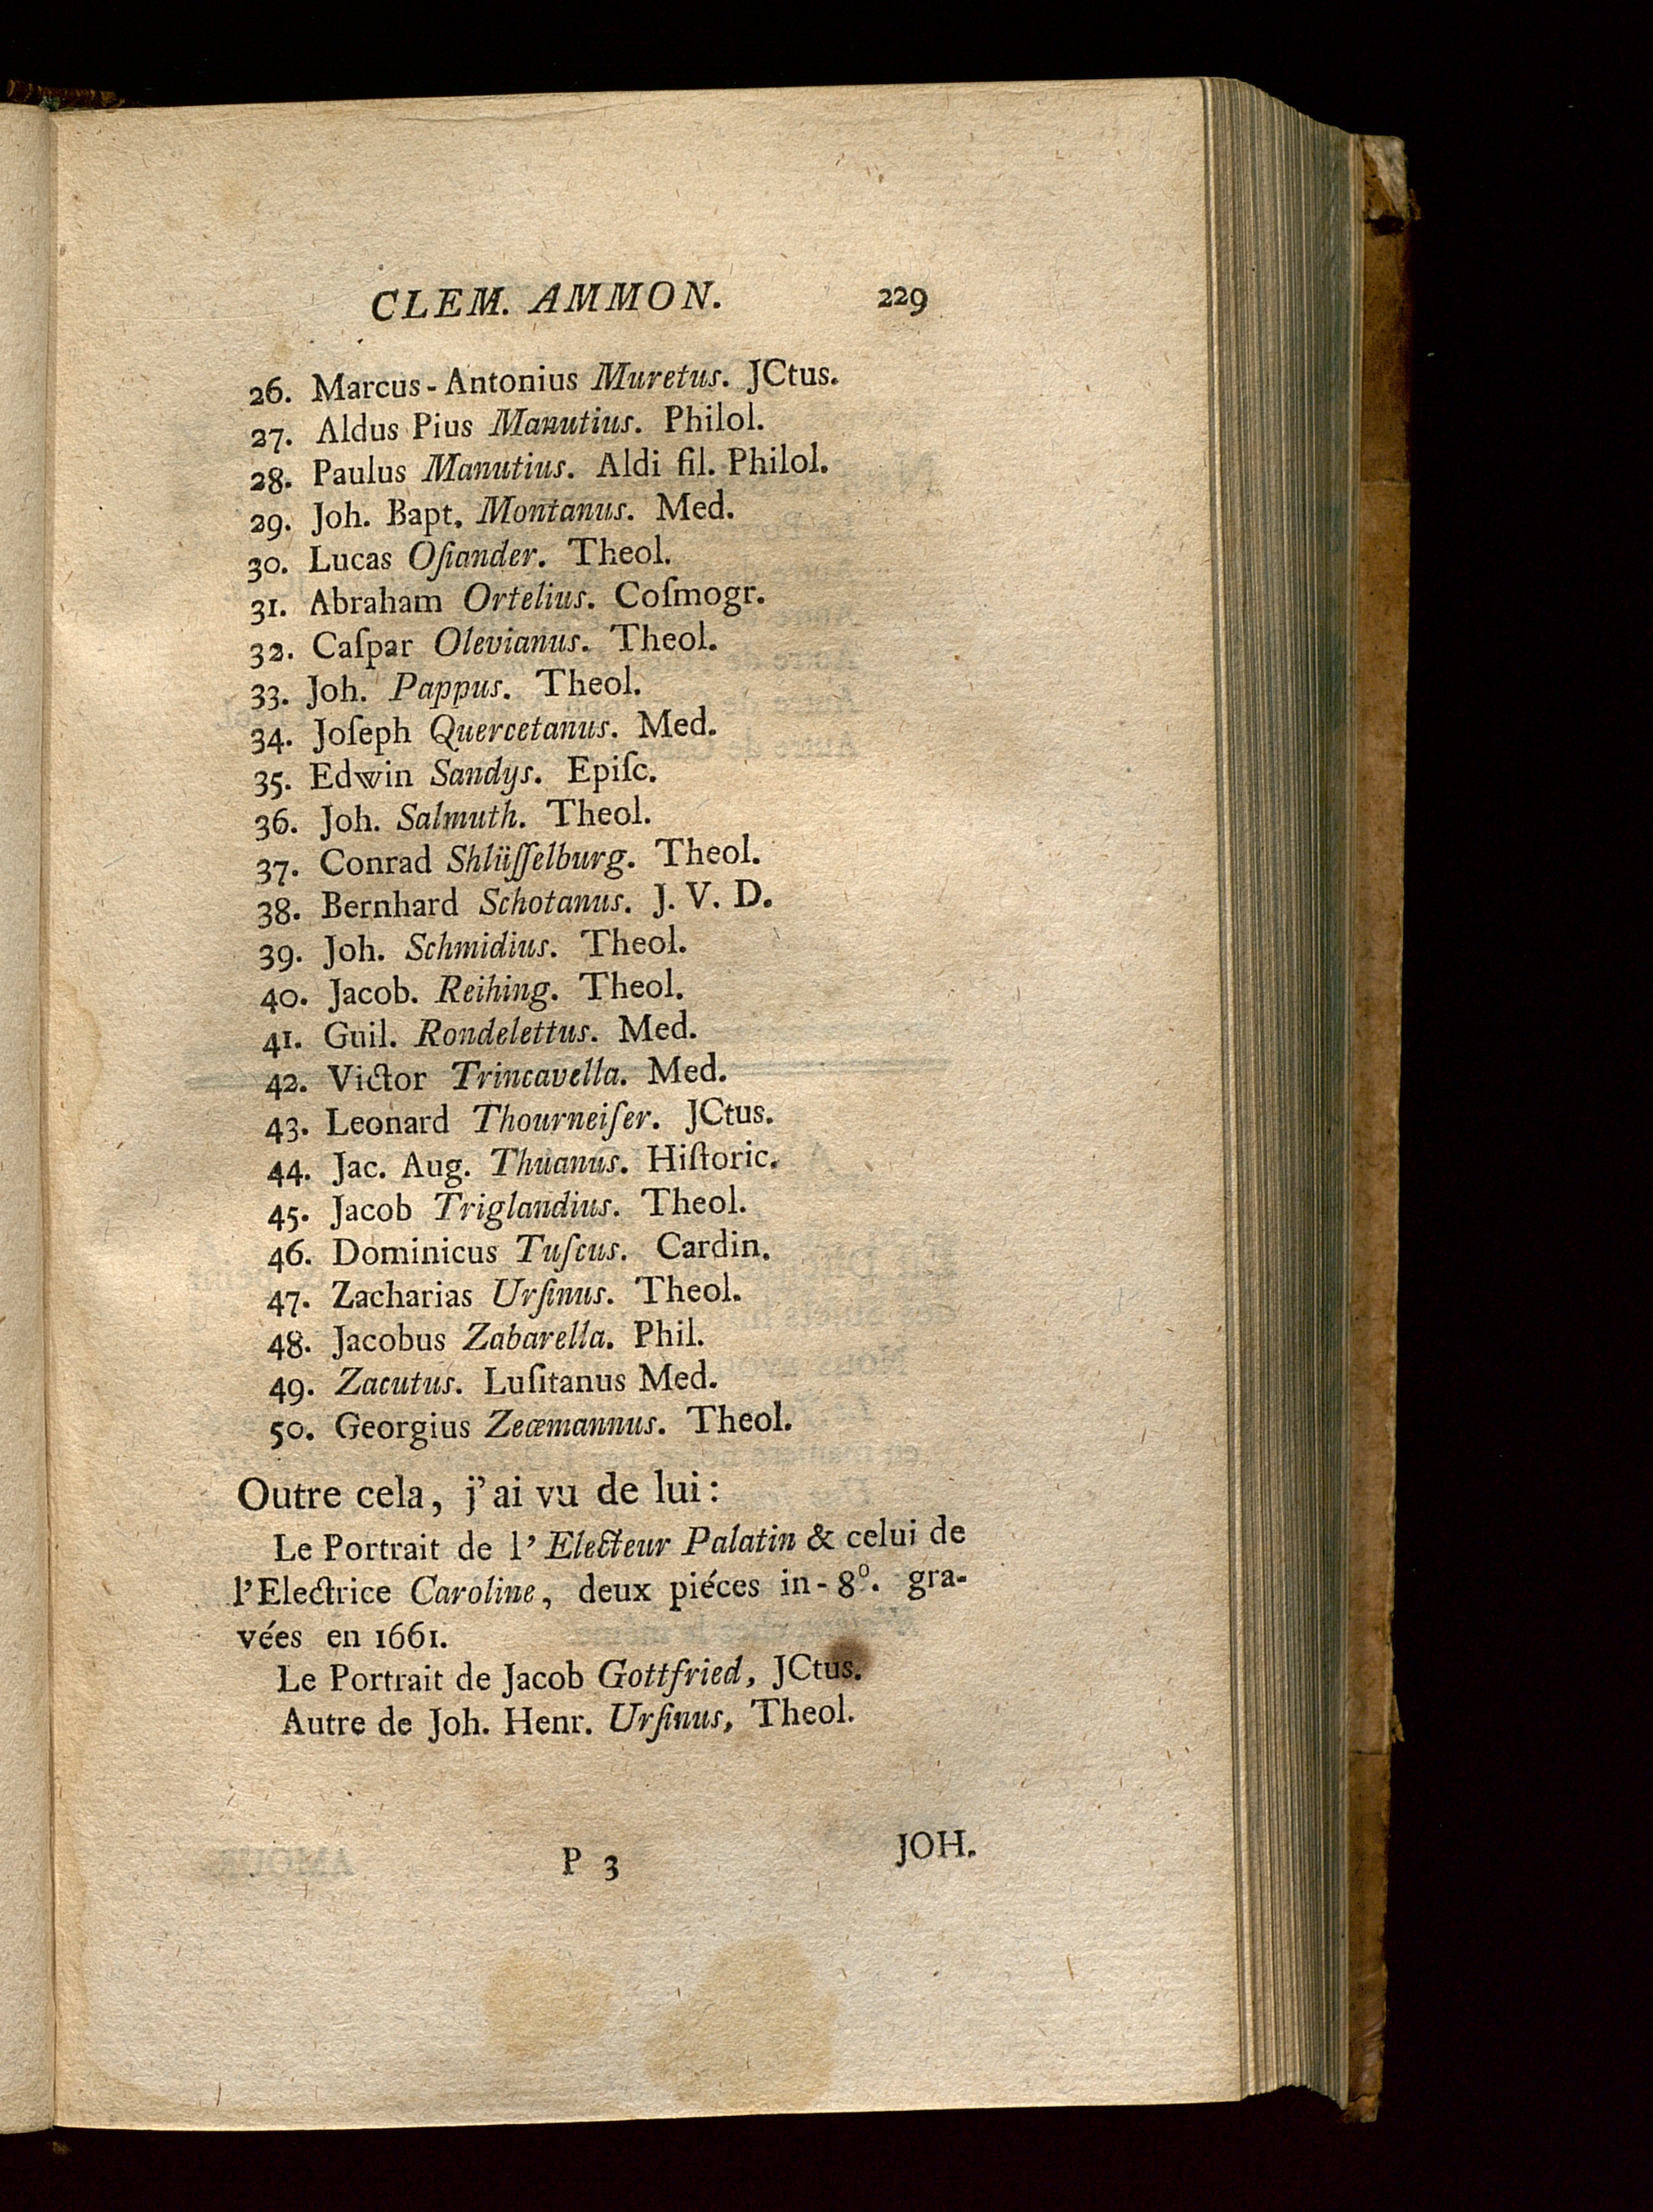 CLEM. AMMON. 229
26. Marcus-Antonius Muretus. JCtus.
27. Aldus Pius Manutius. Philol.
28. Paulus Manutius. Aldi fil. Philol.
29. Joh. Bapt. Montanus. Med.
30. Lucas Oſiander. Theol.
31. Abraham Ortelius. Coſmogr.
32. Caſpar Olevianus. Theol.
33. Joh. Pappus. Theol.
34. Joſeph Quercetanus. Med.
35. Edwin Sandys. Epiſc.
36. Joh. Salmuth. Theol.
37. Conrad Shlüſſelburg. Theol.
38. Bernhard Schotanus. J. V. D.
39. Joh. Schmidius. Theol.
40. Jacob. Reihing. Theol.
41. Guil. Rondelettus. Med.
42. Victor Trincavella. Med.
43. Leonard Thourneiſer. JCtus.
44. Jac. Aug. Thuanus. Hiſtoric.
45. Jacob Triglandius. Theol.
46. Dominicus Tuſcus. Cardin.
47. Zacharias Urſinus. Theol.
48. Jacobus Zabarella. Phil.
49. Zacutus. Luſitanus Med.
50. Georgius Zeæmannus. Theol.
Outre cela, j'ai vu de lui:
Le Portrait de l'Electeur Palatin & celui de
l'Electrice Caroline, deux piéces in-8°. gra-
vées en 1661.
Le Portrait de Jacob Gottfried, JCtus.
Autre de Joh. Henr. Urſinus, Theol.
P 3 JOH.